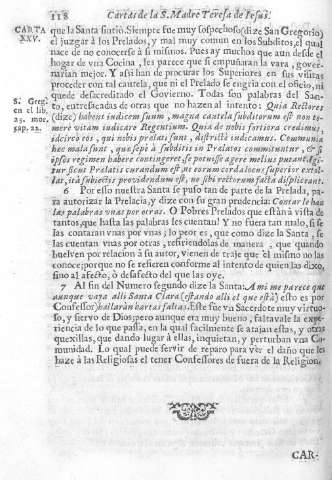 118 Cartas de la S. Madre Teresa de Jesus.
CARTA XXV.
que la Santa sintiò. Siempre fue muy sospechoso (dize San Gregorio)
el juzgar à los Prelados, y mal muy comun en los Subditos, el qual
nace de no conocerse à si mismos. Pues ay muchos que aun desde el
hogar de vna Cozina, les parece que si empuñaran la vara, gover-
narian mejor. Y assi han de procurar los Superiores en sus visitas
proceder con tal cautela, que ni el Prelado se engria con el oficio, ni
quede desacreditado el Govierno. Todas son palabras del San-
S. Greg.
en el lib.
25. mor.
cap. 22.
to, entresacadas de otras que no hazen al intento: Quia Rectores
(dize) habent indicem suum, magna cautela subditorum est non te-
merè vitam iudicare Regentium. Quia de nobis fortiora credimus,
idcirco eos, qui nobis prælati sunt, districtè indicamus. Communia
hæc mala sunt, quæ sepè à subditis in Prælatos committuntur, & si
ipsos regimen habere contingeret, se potuisse agere melius putant. Igi-
tur sicut Prælatis curandum est ne eorum corda locus superior extol-
lat, ità subiectis providendum est, ne sibi rectorum facta displiceant.
6 Por esso nuestra Santa se puso tan de parte de la Prelada, pa-
ra autorizar la Prelacia, y dize con su gran prudencia: Contarle han
las palabras vnas por otras. O Pobres Prelados que estàn à vista de
tantos, que hasta las palabras les cuentan! Y no fuera tan malo, si se
las contaran vnas por vnas; lo peor es, que como dize la Santa se
las cuentan vnas por otras, refiriendolas de manera, que quando
buelven por relacion à su autor, vienen de traje que èl mismo no las
conoce; porque no se refieren conforme al intento de quien las dixo,
sino al afecto, ò desafecto del que las oye.
7 Al fin del Numero segundo dize la Santa: A mi me parece que
aunque vaya alli Santa Clara (estando alli el que està) esto es por
Confessor) hallaràn hartas faltas. Este fue vn Sacerdote muy virtuo-
so, y siervo de Dios; pero aunque era muy bueno, faltavale la expe-
riencia de lo que passa, en la qual facilmente se atajan estas, y otras
quexillas, que dando lugar à ellas, inquietan, y perturban vna Co-
munidad. Lo qual puede servir de reparo para ver el daño que les
haze à las Religiosas el tener Confessores de fuera de la Religion.
CAR-